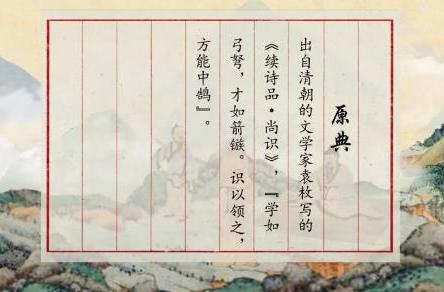 原典
出自清朝的文学家袁枚写的
《续诗品·尚识》，『学如
弓弩，才如箭镞。识以领之，
方能中鹄』。